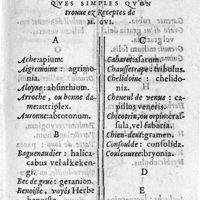 QVES SIMPLES QV'ON
trouue ez Receptes de
M. GVI.
A
Ache: apium:
Aigremoine: agrimo-
nia.
Aloyne: absinthium.
Arroche, ou bonne da-
me: attriplex.
Auronne: abrotonum.
B
Baguenaudier: halica-
cabus vel alkeken-
gi.
Bec de grue: geranion.
Benoiste, voyés Herbe
benoiste.
C
Cabaret: asarum.
Chaussetrape: tribulus.
Chelidoine: chelido-
nia.
Cheueul de venus: ca-
pillus veneris.
Chicotrin, ou orpin: cras-
sula, vel fabaria.
Chien-dent: gramen.
Consoulde: consolida.
Couleuuree: bryonia.
D
E